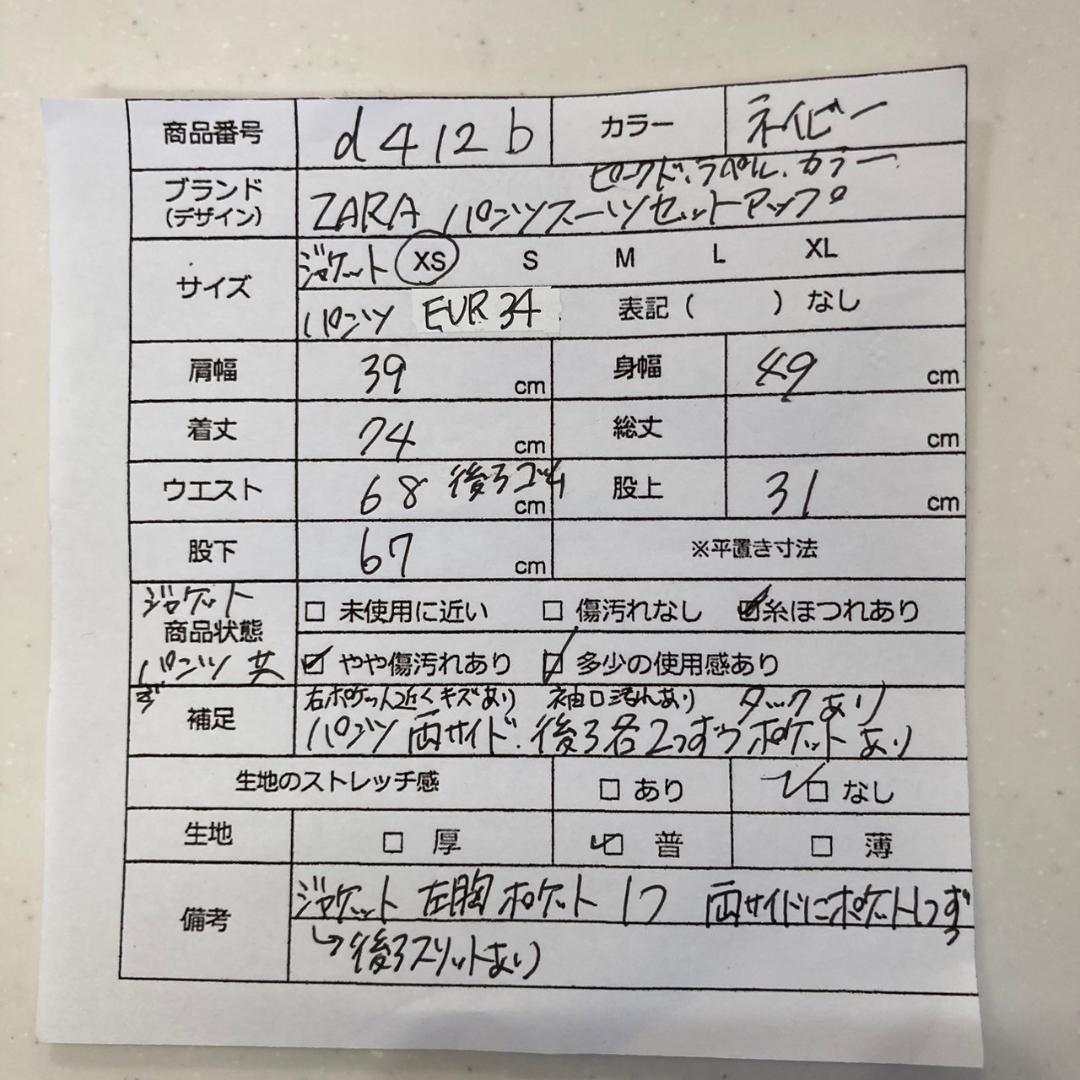 商品番号 d412b カラー ネイビー
ピークド.ラペル.カラー
ブランド (デザイン) ZARA パンツスーツセットアップ
サイズ ジャケット XS S M L XL
パンツ EUR 34 表記 ( ) なし
肩幅 39 cm 身幅 49 cm
着丈 74 cm 総丈 cm
ウエスト 68 後ろゴム cm 股上 31 cm
股下 67 cm ※平置き寸法
ジャケット
商品状態 □ 未使用に近い □ 傷汚れなし ☑ 糸ほつれあり
パンツ 共 ☑ やや傷汚れあり ☑ 多少の使用感あり
補足 右ポケット近くキズあり 袖口汚れあり タックあり
パンツ 両サイド.後ろ各2つずつポケットあり
生地のストレッチ感 □ あり ☑ なし
生地 □ 厚 ☑ 普 □ 薄
備考 ジャケット 左胸ポケット1つ 両サイドにポケット1つずつ
↳後ろスリットあり